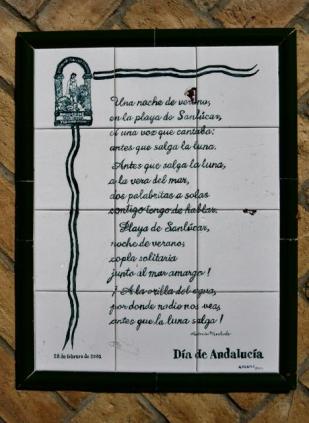 Una noche de verano,
en la playa de Sanlúcar,
oí una voz que cantaba:
antes que salga la luna.
Antes que salga la luna,
a la vera del mar,
dos palabritas a solas
contigo tengo de hablar.
Playa de Sanlúcar,
noche de verano,
copla solitaria
junto al mar amargo!
¡A la orilla del agua,
por donde nadie nos vea,
antes que la luna salga!
Antonio Machado
28 de febrero de
Día de Andalucía